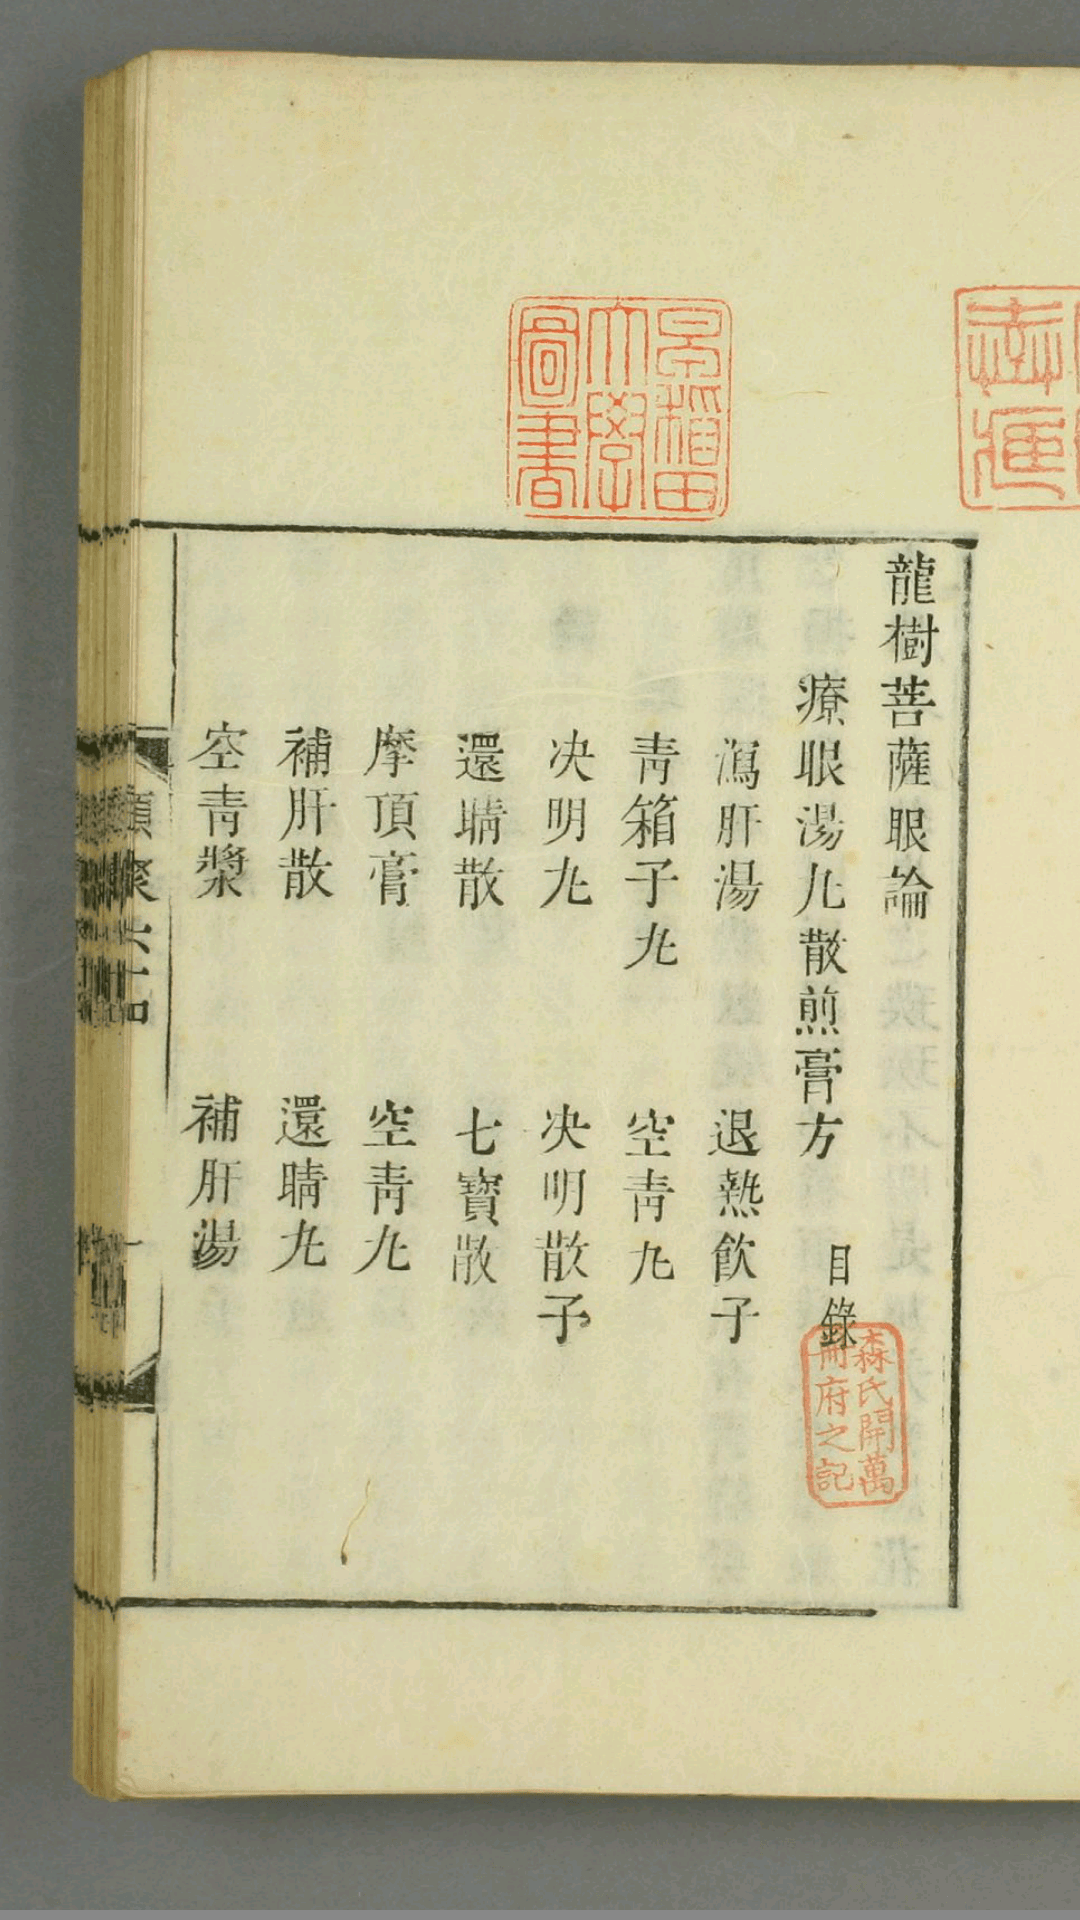 龍樹菩薩眼論
療眼湯丸散煎膏方
目錄
瀉肝湯
退熱飲子
青箱子丸
空青丸
決明丸
決明散子
還睛散
七寶散
摩頂膏
空青丸
補肝散
還睛丸
空青漿
補肝湯
早稻田
大學
圖書
森氏開萬
冊府之記
類聚
一